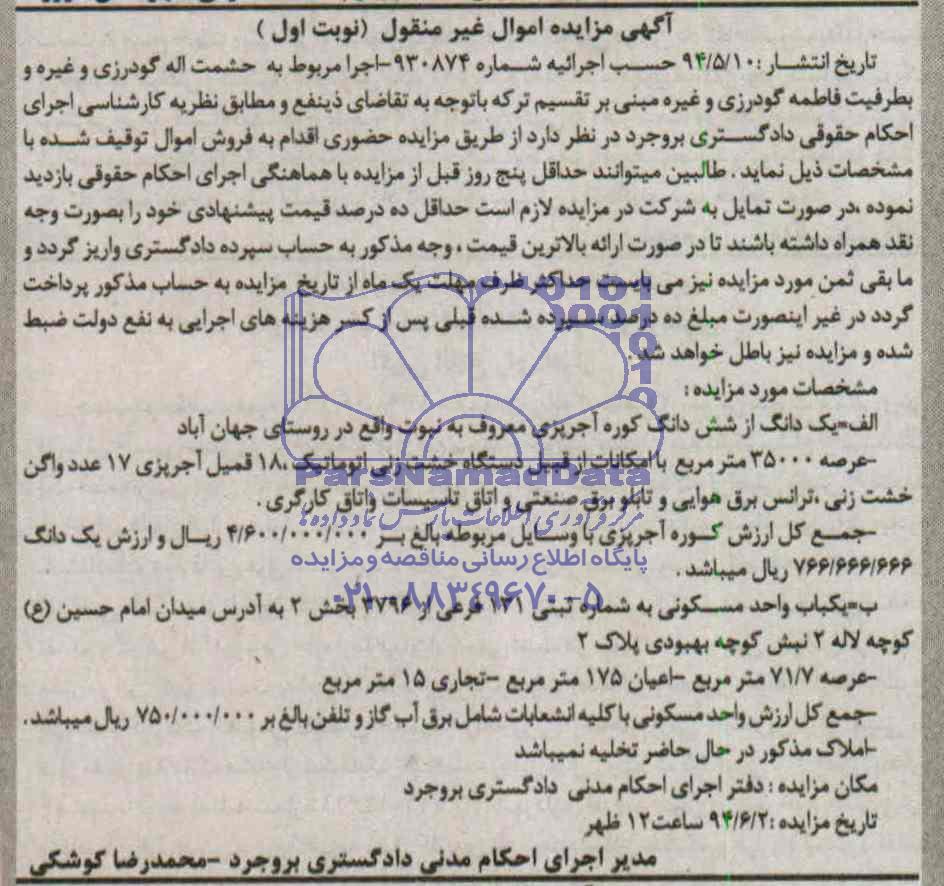 آگهی مزایده اموال غیر منقول (نوبت اول)
تاریخ انتشار :۹۴/۵/۱۰ حسب اجرائیه شماره ۹۳۰۸۷۴-اجرا مربوط به حشمت اله گودرزی و غیره و
بطرفیت فاطمه گودرزی و غیره مبنی بر تقسیم ترکه باتوجه به تقاضای ذینفع و مطابق نظریه کارشناسی اجرای
احکام حقوقی دادگستری بروجرد در نظر دارد از طریق مزایده حضوری اقدام به فروش اموال توقیف شده با
مشخصات ذیل نماید . طالبین میتوانند حداقل پنج روز قبل از مزایده با هماهنگی اجرای احکام حقوقی بازدید
نموده ،در صورت تمایل به شرکت در مزایده لازم است حداقل ده درصد قیمت پیشنهادی خود را بصورت وجه
نقد همراه داشته باشند تا در صورت ارائه بالاترین قیمت ، وجه مذکور به حساب سپرده دادگستری واریز گردد و
ما بقی ثمن مورد مزایده نیز می بایست حداکثر ظرف مهلت یک ماه از تاریخ مزایده به حساب مذکور پرداخت
گردد در غیر اینصورت مبلغ ده درصد سپرده شده قبلی پس از کسر هزینه های اجرایی به نفع دولت ضبط
شده و مزایده نیز باطل خواهد شد .
مشخصات مورد مزایده :
الف=یک دانگ از شش دانگ کوره آجرپزی معروف به نبوت واقع در روستای جهان آباد
-عرصه ۳۵۰۰۰ متر مربع با امکانات از قبیل دستگاه خشت زنی اتوماتیک ،۱۸ قمیل آجرپزی ۱۷ عدد واگن
خشت زنی ،ترانس برق هوایی و تابلو برق صنعتی و اتاق تاسیسات واتاق کارگری .
-جمع کل ارزش کوره آجرپزی با وسایل مربوطه بالغ بر ۴/۶۰۰/۰۰۰/۰۰۰ ریال و ارزش یک دانگ
۷۶۶/۶۶۶/۶۶۶ ریال میباشد .
ب=یکباب واحد مسکونی به شماره ثبتی ۱۳۱ فرعی از ۳۷۹۶ بخش ۲ به آدرس میدان امام حسین (ع)
کوچه لاله ۲ نبش کوچه بهبودی پلاک ۲
-عرصه ۷۱/۷ متر مربع -اعیان ۱۷۵ متر مربع -تجاری ۱۵ متر مربع
-جمع کل ارزش واحد مسکونی با کلیه انشعابات شامل برق آب گاز و تلفن بالغ بر ۷۵۰/۰۰۰/۰۰۰ ریال میباشد.
-املاک مذکور در حال حاضر تخلیه نمیباشد
مکان مزایده : دفتر اجرای احکام مدنی دادگستری بروجرد
تاریخ مزایده :۹۴/۶/۲ ساعت۱۲ ظهر
مدیر اجرای احکام مدنی دادگستری بروجرد -محمدرضا کوشکی
ParsNamadData
مرکز فرآوری اطلاعات پارس نماد داده ها
پایگاه اطلاع رسانی مناقصه و مزایده
۰۲۱-۸۸۳۴۹۶۷۰-۵